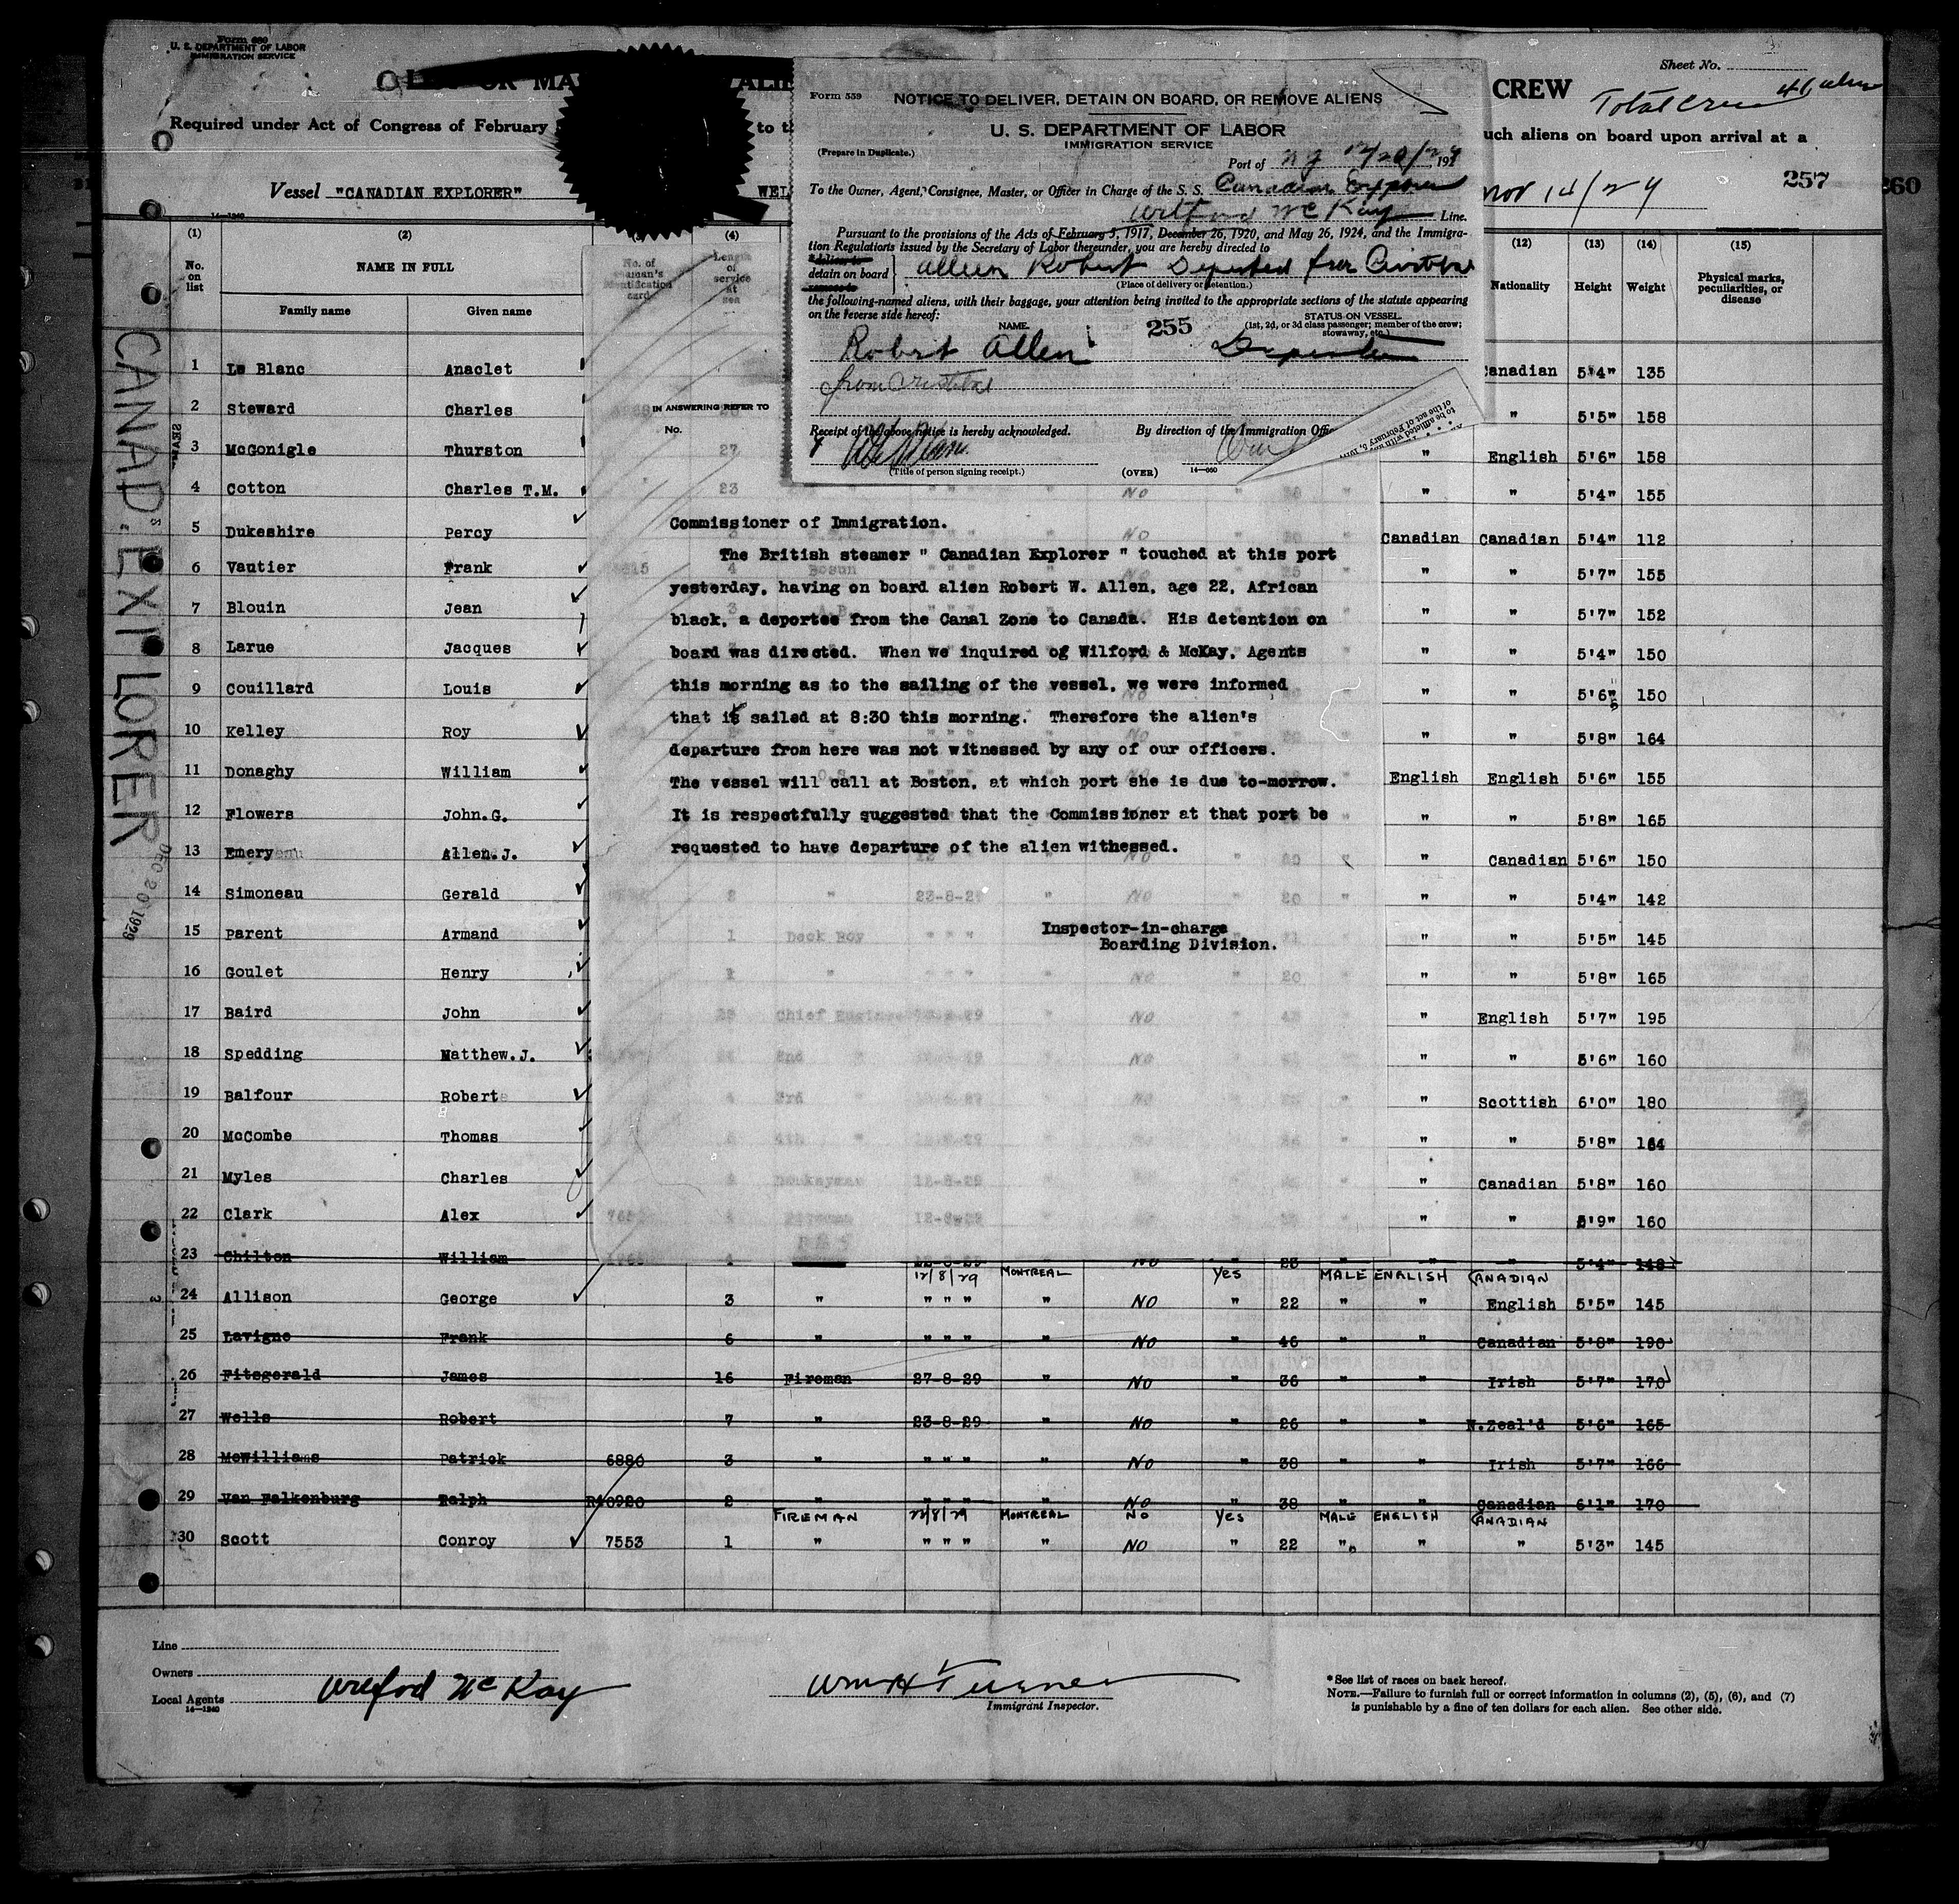 Form 680
U. S. DEPARTMENT OF LABOR
IMMIGRATION SERVICE
Sheet No.
CREW
Total Crew 41 alien
Required under Act of Congress of February
to th
uch aliens on board upon arrival at a
Vessel "CANADIAN EXPLORER"
Nov 14/29
257
260
14-1240
Form 559
NOTICE TO DELIVER, DETAIN ON BOARD, OR REMOVE ALIENS
U. S. DEPARTMENT OF LABOR
IMMIGRATION SERVICE
(Prepare in Duplicate.)
Port of N Y 12/20/29 192
To the Owner, Agent, Consignee, Master, or Officer in Charge of the S. S. Canadian Explorer
Wilford McKay Line.
Pursuant to the provisions of the Acts of February 5, 1917, December 26, 1920, and May 26, 1924, and the Immigra-
tion Regulations issued by the Secretary of Labor thereunder, you are hereby directed to
detain on board } Allen Robert Deported from Cristobal
(Place of delivery or detention.)
the following-named aliens, with their baggage, your attention being invited to the appropriate sections of the statute appearing
on the reverse side hereof:
NAME. 255 STATUS ON VESSEL
(1st, 2d, or 3d class passenger; member of the crew;
stowaway, etc.)
Robert Allen
from Cristobal
Receipt of the above notice is hereby acknowledged. By direction of the Immigration Offi
(Title of person signing receipt.) (OVER) 14-660
to be afflicted with any
of the act of February 5, 1917
IN ANSWERING REFER TO
No.
Commissioner of Immigration.
The British steamer " Canadian Explorer " touched at this port
yesterday, having on board alien Robert W. Allen, age 22, African
black, a deportee from the Canal Zone to Canada. His detention on
board was directed. When we inquired of Wilford & McKay, Agents
this morning as to the sailing of the vessel, we were informed
that it sailed at 8:30 this morning. Therefore the alien's
departure from here was not witnessed by any of our officers.
The vessel will call at Boston, at which port she is due to-morrow.
It is respectfully suggested that the Commissioner at that port be
requested to have departure of the alien withessed.
Inspector-in-charge
Boarding Division.
CANAD: EXPLORER
DEC 20 1929
(1) (2) (4) (12) (13) (14) (15)
No. on list NAME IN FULL Length of service at sea Nationality Height Weight Physical marks, peculiarities, or disease
Family name Given name
1 Le Blanc Anaclet Canadian 5'4" 135
2 Steward Charles " 5'5" 158
3 McGonigle Thurston 27 " English 5'6" 158
4 Cotton Charles T.M. 23 NO " " 5'4" 155
5 Dukeshire Percy Canadian Canadian 5'4" 112
6 Vautier Frank 4 Bosun " " 5'7" 155
7 Blouin Jean 3 A.B. " " 5'7" 152
8 Larue Jacques " " 5'4" 150
9 Couillard Louis " " 5'6" 150
10 Kelley Roy " " 5'8" 164
11 Donaghy William English English 5'6" 155
12 Flowers John.G. " " 5'8" 165
13 Emery Allen.J. " Canadian 5'6" 150
14 Simoneau Gerald 2 " 23-8-29 " NO " 20 " " " 5'4" 142
15 Parent Armand 1 Deck Boy " " " " " 5'5" 145
16 Goulet Henry NO " 20 " " " 5'8" 165
17 Baird John Chief Engineer NO " English 5'7" 195
18 Spedding Matthew.J. 2nd NO " " 5'6" 160
19 Balfour Robert 3rd " Scottish 6'0" 180
20 McCombe Thomas 4th " " 5'8" 164
21 Myles Charles Donkeyman 12-8-29 " Canadian 5'8" 160
22 Clark Alex Fireman 12-8-29 " " 5'9" 160
23 Chilton William 4 12-8-29 NO " 23 " " " 5'4" 148
12/8/29 MONTREAL Yes MALE ENGLISH CANADIAN
24 Allison George 3 " " " " " NO " 22 " " English 5'5" 145
25 Lavigne Frank 6 " " " " " NO " 46 " " Canadian 5'8" 190
26 Fitzgerald James 16 Fireman 27-8-29 " NO " 36 " " Irish 5'7" 170
27 Wells Robert 7 " 23-8-29 " NO " 26 " " N.Zeal'd 5'6" 165
28 McWilliams Patrick 6880 3 " " " " " NO " 38 " " Irish 5'7" 166
29 Van Falkenburg Ralph R40920 2 " " " " " NO " 38 " " Canadian 6'1" 170
FIREMAN 12/8/29 MONTREAL NO Yes MALE ENGLISH CANADIAN
30 Scott Conroy 7553 1 " " " " " NO " 22 " " " 5'3" 145
Line
Owners
Local Agents Wilford McKay
14-1240
Wm H Turner
Immigrant Inspector.
* See list of races on back hereof.
NOTE.—Failure to furnish full or correct information in columns (2), (5), (6), and (7)
is punishable by a fine of ten dollars for each alien. See other side.